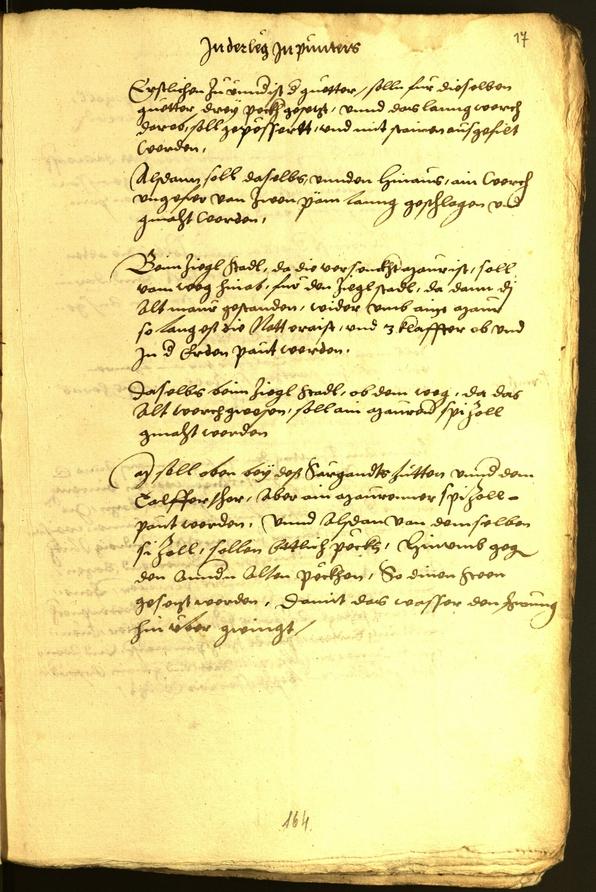 17
In der leg In pünters
Erstlichen Zu unndist d guetter, solln für dieselben
guetter drey pockh gesetzt, unnd das lanng worch
darob, soll gepössertt, und mit stainen ausgefilt
werden,
Alsdann soll daselbs, unnden hinaus, ain worch
ungefer van Zwen pam lanng geschlagen und
gmacht werden,
Beim Ziegl stadl, da die versenckht maur ist, soll
vom weg hinab, für den Zieglstadl, da dann di
Alt maur gestanden, wider umb ain maur
so lang es die Nott eraist, und 3 klaffter ob und
In d Erden paut werden.
daselbs beim Ziegl stadl, ob dem weg, da das
Alt worch gwesen, soll ain spizoll
gmacht werden
soll oben bey des hütten unnd dem
Talffer thor, Aber ain spizoll
paut werden, unnd Alsdan van demselben
spizoll, sollen etlich pöckh, hinumb geg
den Alten pöckhen, So
gesetzt werden, damit das wasser den
hinüber gwingt
164